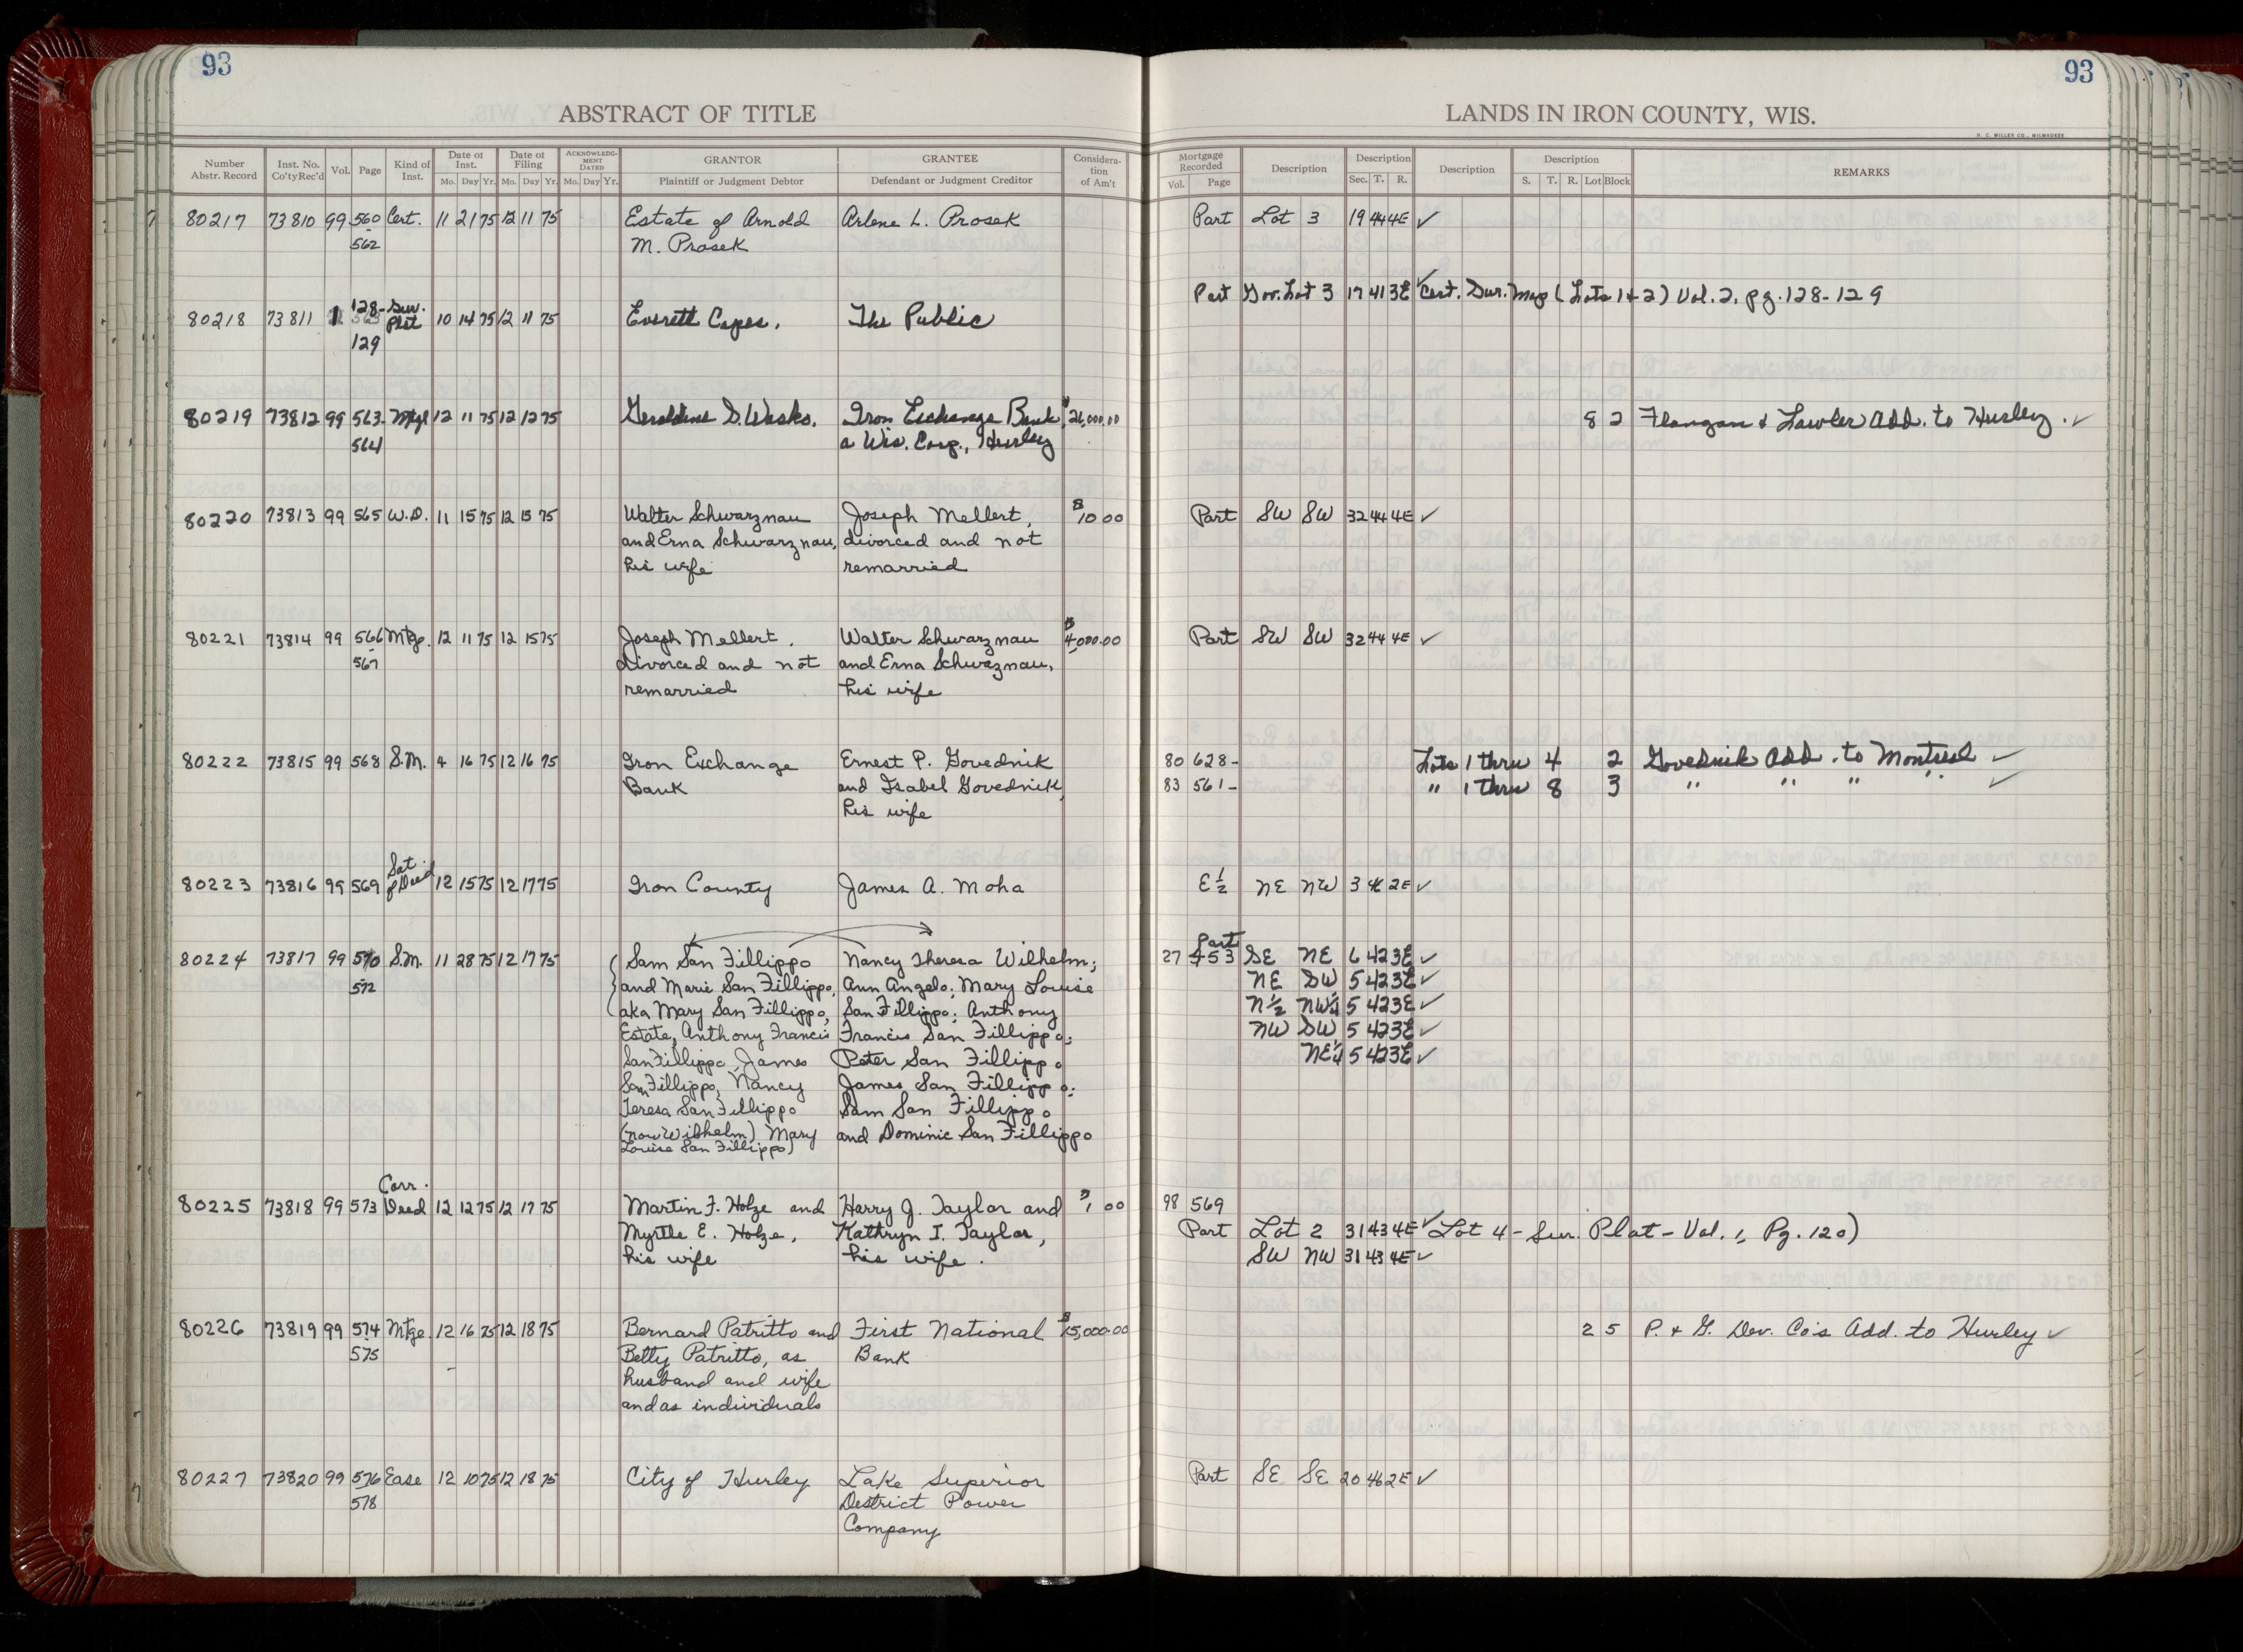 93
93
ABSTRACT OF TITLE
LANDS IN IRON COUNTY, WIS.
H. C. MILLER CO., MILWAUKEE
Number Abstr. Record Inst. No. Co'ty Rec'd Vol. Page Kind of Inst. Date of Inst. Mo. Day Yr. Date of Filing Mo. Day Yr. ACKNOWLEDGMENT DATED Mo. Day Yr. GRANTOR Plaintiff or Judgment Debtor GRANTEE Defendant or Judgment Creditor Consideration of Am't Mortgage Recorded Vol. Page Description Description Sec. T. R. Description Description S. T. R. Lot Block REMARKS
80217 73810 99 560 Cert. 11 21 75 12 11 75 Estate of Arnold Arlene L. Prosek Part Lot 3 19 44 4E ✓
-562 M. Prosek
Part Gov. Lot 3 17 41 3E ✓ Cert. Sur. Map (Lots 1+2) Vol. 2, pg. 128-129
128- Sur.
80218 73811 1 Plat 10 14 75 12 11 75 Everett Capes. The Public
129
80219 73812 99 563- Mtge 12 11 75 12 12 75 Geraldine S. Wasko. Iron Exchange Bank $26,000.00 8 2 Flangan & Lawler Add. to Hurley. ✓
564 a Wis. Corp., Hurley
80220 73813 99 565 W.D. 11 15 75 12 15 75 Walter Schwarznau Joseph Mellert, $10 00 Part SW SW 32 44 4E ✓
and Erna Schwarznau, divorced and not
his wife remarried
80221 73814 99 566 Mtge. 12 11 75 12 15 75 Joseph Mellert, Walter Schwarznau $4,000.00 Part SW SW 32 44 4E ✓
-567 divorced and not and Erna Schwarznau,
remarried his wife
80222 73815 99 568 S.M. 4 16 75 12 16 75 Iron Exchange Ernest P. Govednik 80 628- Lots 1 thru 4 2 Govednik Add. to Montreal ✓
Bank and Isabel Govednik, 83 561- " 1 thru 8 3 " " " " ✓
his wife
Sat.
80223 73816 99 569 of Deed 12 15 75 12 17 75 Iron County James A. Moha E½ NE NW 3 46 2E ✓
Part
80224 73817 99 570 S.M. 11 28 75 12 17 75 Sam San Fillippo Nancy Theresa Wilhelm; 27 453 SE NE 6 42 3E ✓
572 and Marie San Fillippo, Ann Angelo; Mary Louise NE SW 5 42 3E ✓
aka Mary San Fillippo, San Fillippo; Anthony N½ NW¼ 5 42 3E ✓
Estate, Anthony Francis Francis San Fillippo; NW SW 5 42 3E ✓
San Fillippo, James Peter San Fillippo NE¼ 5 42 3E ✓
San Fillippo, Nancy James San Fillippo;
Teresa San Fillippo Sam San Fillippo
(now Wilhelm) Mary and Dominic San Fillippo
Louise San Fillippo)
Corr.
80225 73818 99 573 Deed 12 12 75 12 17 75 Martin F. Holze and Harry J. Taylor and $1 00 98 569
Myrtle E. Holze, Kathryn I. Taylor, Part Lot 2 31 43 4E ✓ Lot 4 - Sur. Plat - Vol. 1, Pg. 120)
his wife his wife. SW NW 31 43 4E ✓
80226 73819 99 574 Mtge. 12 16 75 12 18 75 Bernard Patritto and First National $15,000.00 2 5 P. & G. Dev. Co's Add. to Hurley ✓
575 Betty Patritto, as Bank
husband and wife
and as individuals
80227 73820 99 576 Ease 12 10 75 12 18 75 City of Hurley Lake Superior Part SE SE 20 46 2E ✓
578 District Power
Company